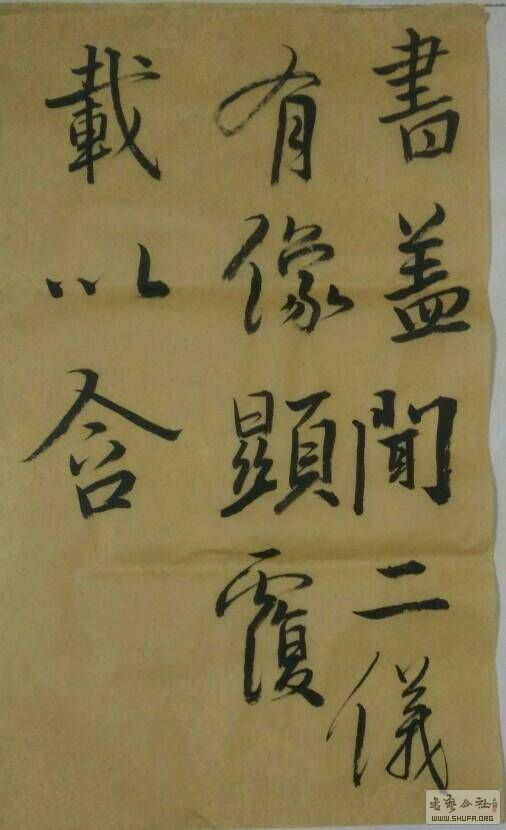 書盖聞二儀
有像顯覆
載以含
書藝公社
WWW.SHUFA.ORG